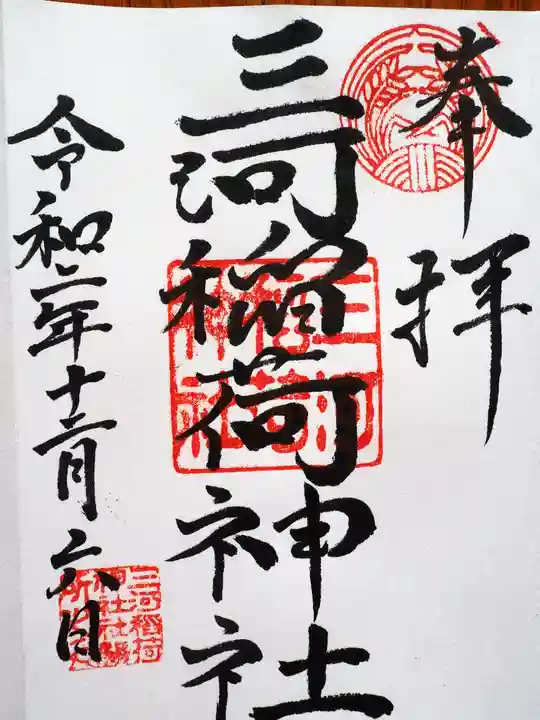 奉拝
三河稲荷神社
令和二年十二月六日
三河稲荷神社
三河稲荷
神社社務
所